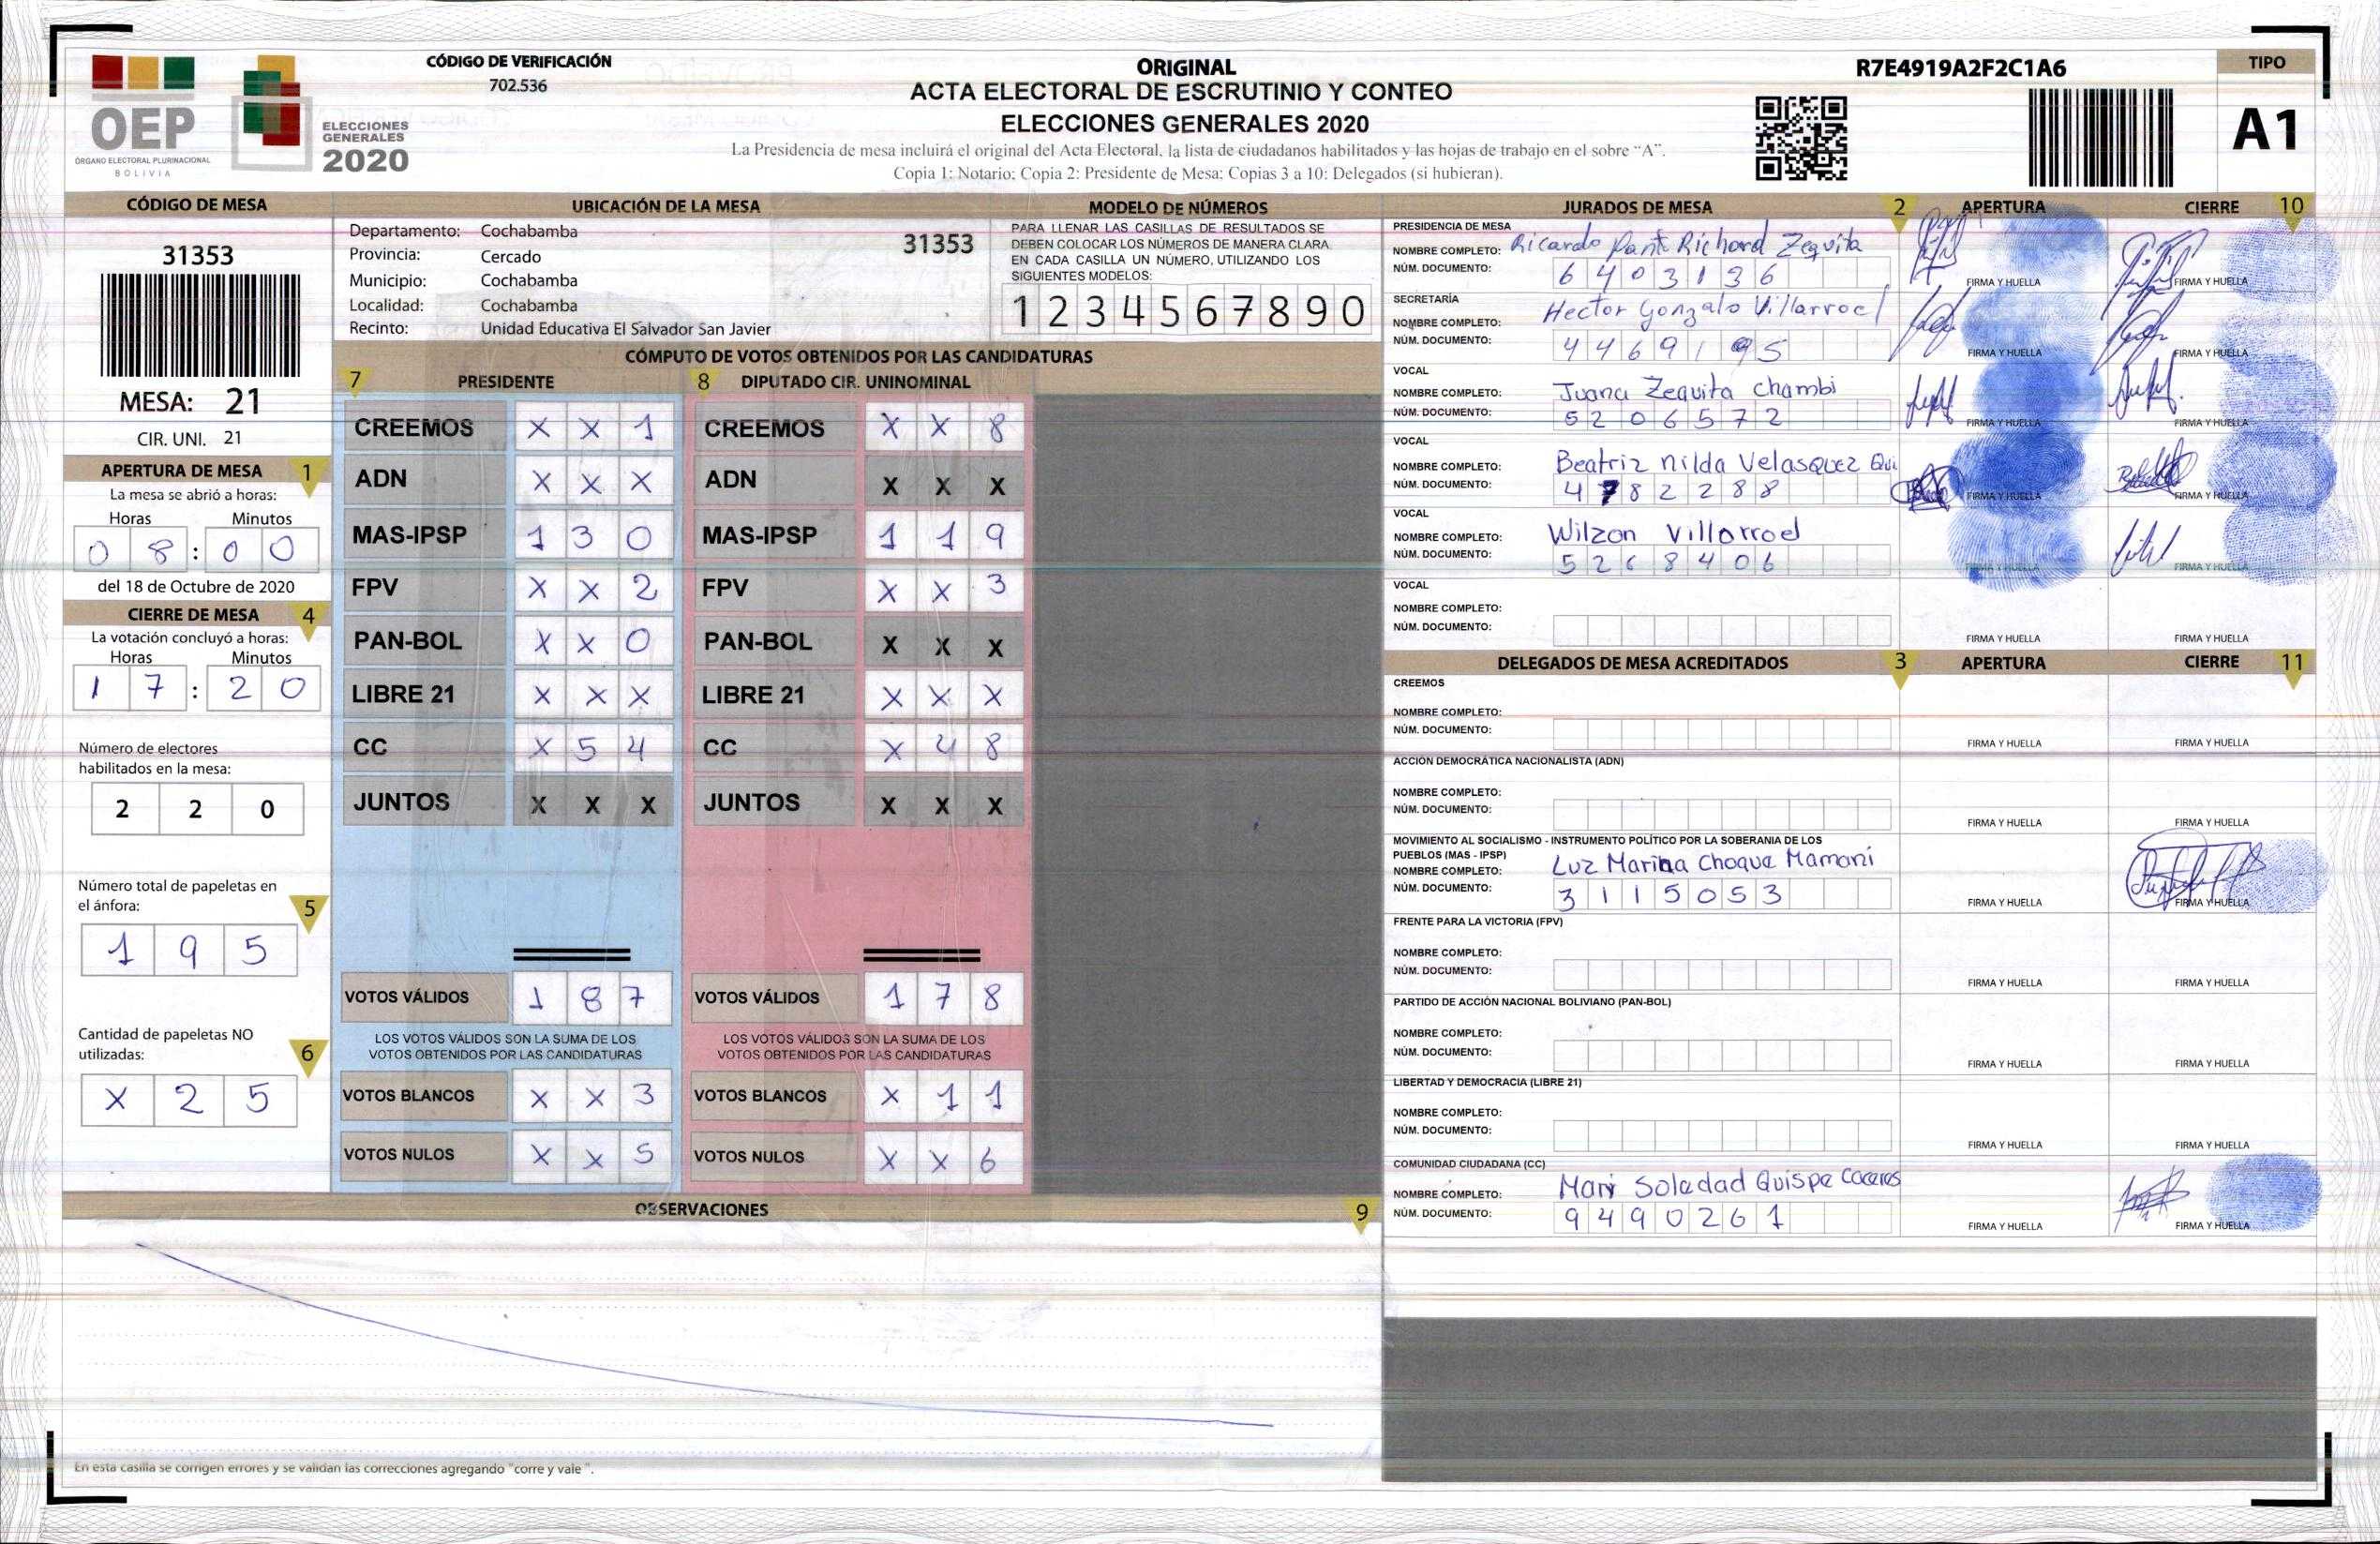 OEP
ÓRGANO ELECTORAL PLURINACIONAL
BOLIVIA
ELECCIONES
GENERALES
2020
CÓDIGO DE VERIFICACIÓN
702.536
ORIGINAL
ACTA ELECTORAL DE ESCRUTINIO Y CONTEO
ELECCIONES GENERALES 2020
La Presidencia de mesa incluirá el original del Acta Electoral, la lista de ciudadanos habilitados y las hojas de trabajo en el sobre "A".
Copia 1: Notario; Copia 2: Presidente de Mesa; Copias 3 a 10: Delegados (si hubieran).
R7E4919A2F2C1A6
TIPO
A1
CÓDIGO DE MESA
31353
MESA: 21
CIR. UNI. 21
APERTURA DE MESA 1
La mesa se abrió a horas:
Horas Minutos
0 8 : 0 0
del 18 de Octubre de 2020
CIERRE DE MESA 4
La votación concluyó a horas:
Horas Minutos
1 7 : 2 0
Número de electores
habilitados en la mesa:
2 2 0
Número total de papeletas en
el ánfora: 5
1 9 5
Cantidad de papeletas NO
utilizadas: 6
X 2 5
UBICACIÓN DE LA MESA
Departamento: Cochabamba
Provincia: Cercado
Municipio: Cochabamba
Localidad: Cochabamba
Recinto: Unidad Educativa El Salvador San Javier
31353
MODELO DE NÚMEROS
PARA LLENAR LAS CASILLAS DE RESULTADOS SE
DEBEN COLOCAR LOS NÚMEROS DE MANERA CLARA.
EN CADA CASILLA UN NÚMERO, UTILIZANDO LOS
SIGUIENTES MODELOS:
1 2 3 4 5 6 7 8 9 0
CÓMPUTO DE VOTOS OBTENIDOS POR LAS CANDIDATURAS
7 PRESIDENTE 8 DIPUTADO CIR. UNINOMINAL
CREEMOS X X 1 CREEMOS X X 8
ADN X X X ADN X X X
MAS-IPSP 1 3 0 MAS-IPSP 1 1 9
FPV X X 2 FPV X X 3
PAN-BOL X X 0 PAN-BOL X X X
LIBRE 21 X X X LIBRE 21 X X X
CC X 5 4 CC X 4 8
JUNTOS X X X JUNTOS X X X
VOTOS VÁLIDOS 1 8 7 VOTOS VÁLIDOS 1 7 8
LOS VOTOS VÁLIDOS SON LA SUMA DE LOS LOS VOTOS VÁLIDOS SON LA SUMA DE LOS
VOTOS OBTENIDOS POR LAS CANDIDATURAS VOTOS OBTENIDOS POR LAS CANDIDATURAS
VOTOS BLANCOS X X 3 VOTOS BLANCOS X 1 1
VOTOS NULOS X X 5 VOTOS NULOS X X 6
OBSERVACIONES 9
En esta casilla se corrigen errores y se validan las correcciones agregando "corre y vale ".
JURADOS DE MESA 2 APERTURA CIERRE 10
PRESIDENCIA DE MESA
NOMBRE COMPLETO: Ricardo Richard Zequita
NÚM. DOCUMENTO: 6 4 0 3 1 3 6
FIRMA Y HUELLA FIRMA Y HUELLA
SECRETARÍA
NOMBRE COMPLETO: Hector Gonzalo Villarroel
NÚM. DOCUMENTO: 4 4 6 9 1 9 5
FIRMA Y HUELLA FIRMA Y HUELLA
VOCAL
NOMBRE COMPLETO: Juana Zequita Chambi
NÚM. DOCUMENTO: 5 2 0 6 5 7 2
FIRMA Y HUELLA FIRMA Y HUELLA
VOCAL
NOMBRE COMPLETO: Beatriz nilda Velasquez Qui
NÚM. DOCUMENTO: 4 7 8 2 2 8 8
FIRMA Y HUELLA FIRMA Y HUELLA
VOCAL
NOMBRE COMPLETO: Wilzon Villarroel
NÚM. DOCUMENTO: 5 2 6 8 4 0 6
FIRMA Y HUELLA FIRMA Y HUELLA
VOCAL
NOMBRE COMPLETO:
NÚM. DOCUMENTO:
FIRMA Y HUELLA FIRMA Y HUELLA
DELEGADOS DE MESA ACREDITADOS 3 APERTURA CIERRE 11
CREEMOS
NOMBRE COMPLETO:
NÚM. DOCUMENTO:
FIRMA Y HUELLA FIRMA Y HUELLA
ACCIÓN DEMOCRÁTICA NACIONALISTA (ADN)
NOMBRE COMPLETO:
NÚM. DOCUMENTO:
FIRMA Y HUELLA FIRMA Y HUELLA
MOVIMIENTO AL SOCIALISMO - INSTRUMENTO POLÍTICO POR LA SOBERANIA DE LOS
PUEBLOS (MAS - IPSP)
NOMBRE COMPLETO: Luz Marina Choque Mamani
NÚM. DOCUMENTO: 3 1 1 5 0 5 3
FIRMA Y HUELLA FIRMA Y HUELLA
FRENTE PARA LA VICTORIA (FPV)
NOMBRE COMPLETO:
NÚM. DOCUMENTO:
FIRMA Y HUELLA FIRMA Y HUELLA
PARTIDO DE ACCIÓN NACIONAL BOLIVIANO (PAN-BOL)
NOMBRE COMPLETO:
NÚM. DOCUMENTO:
FIRMA Y HUELLA FIRMA Y HUELLA
LIBERTAD Y DEMOCRACIA (LIBRE 21)
NOMBRE COMPLETO:
NÚM. DOCUMENTO:
FIRMA Y HUELLA FIRMA Y HUELLA
COMUNIDAD CIUDADANA (CC)
NOMBRE COMPLETO: Mari Soledad Quispe Caceres
NÚM. DOCUMENTO: 9 4 9 0 2 6 1
FIRMA Y HUELLA FIRMA Y HUELLA